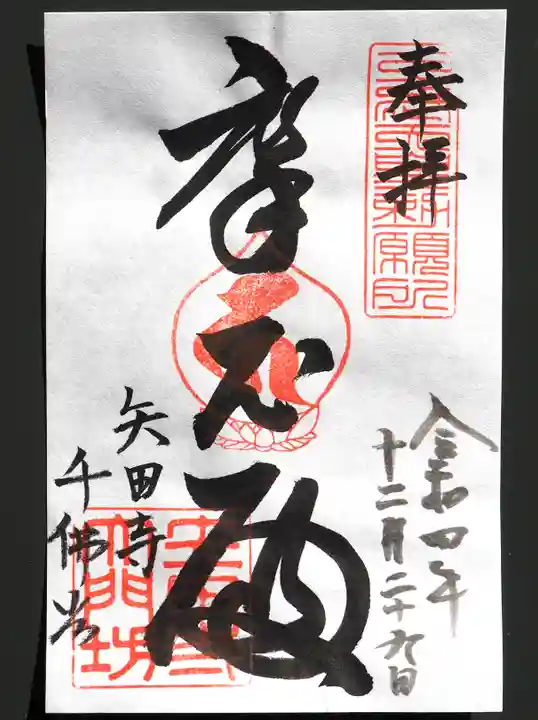 奉拝
令和四年
十二月二十九日
摩尼殿
矢田寺
千佛堂
大門坊